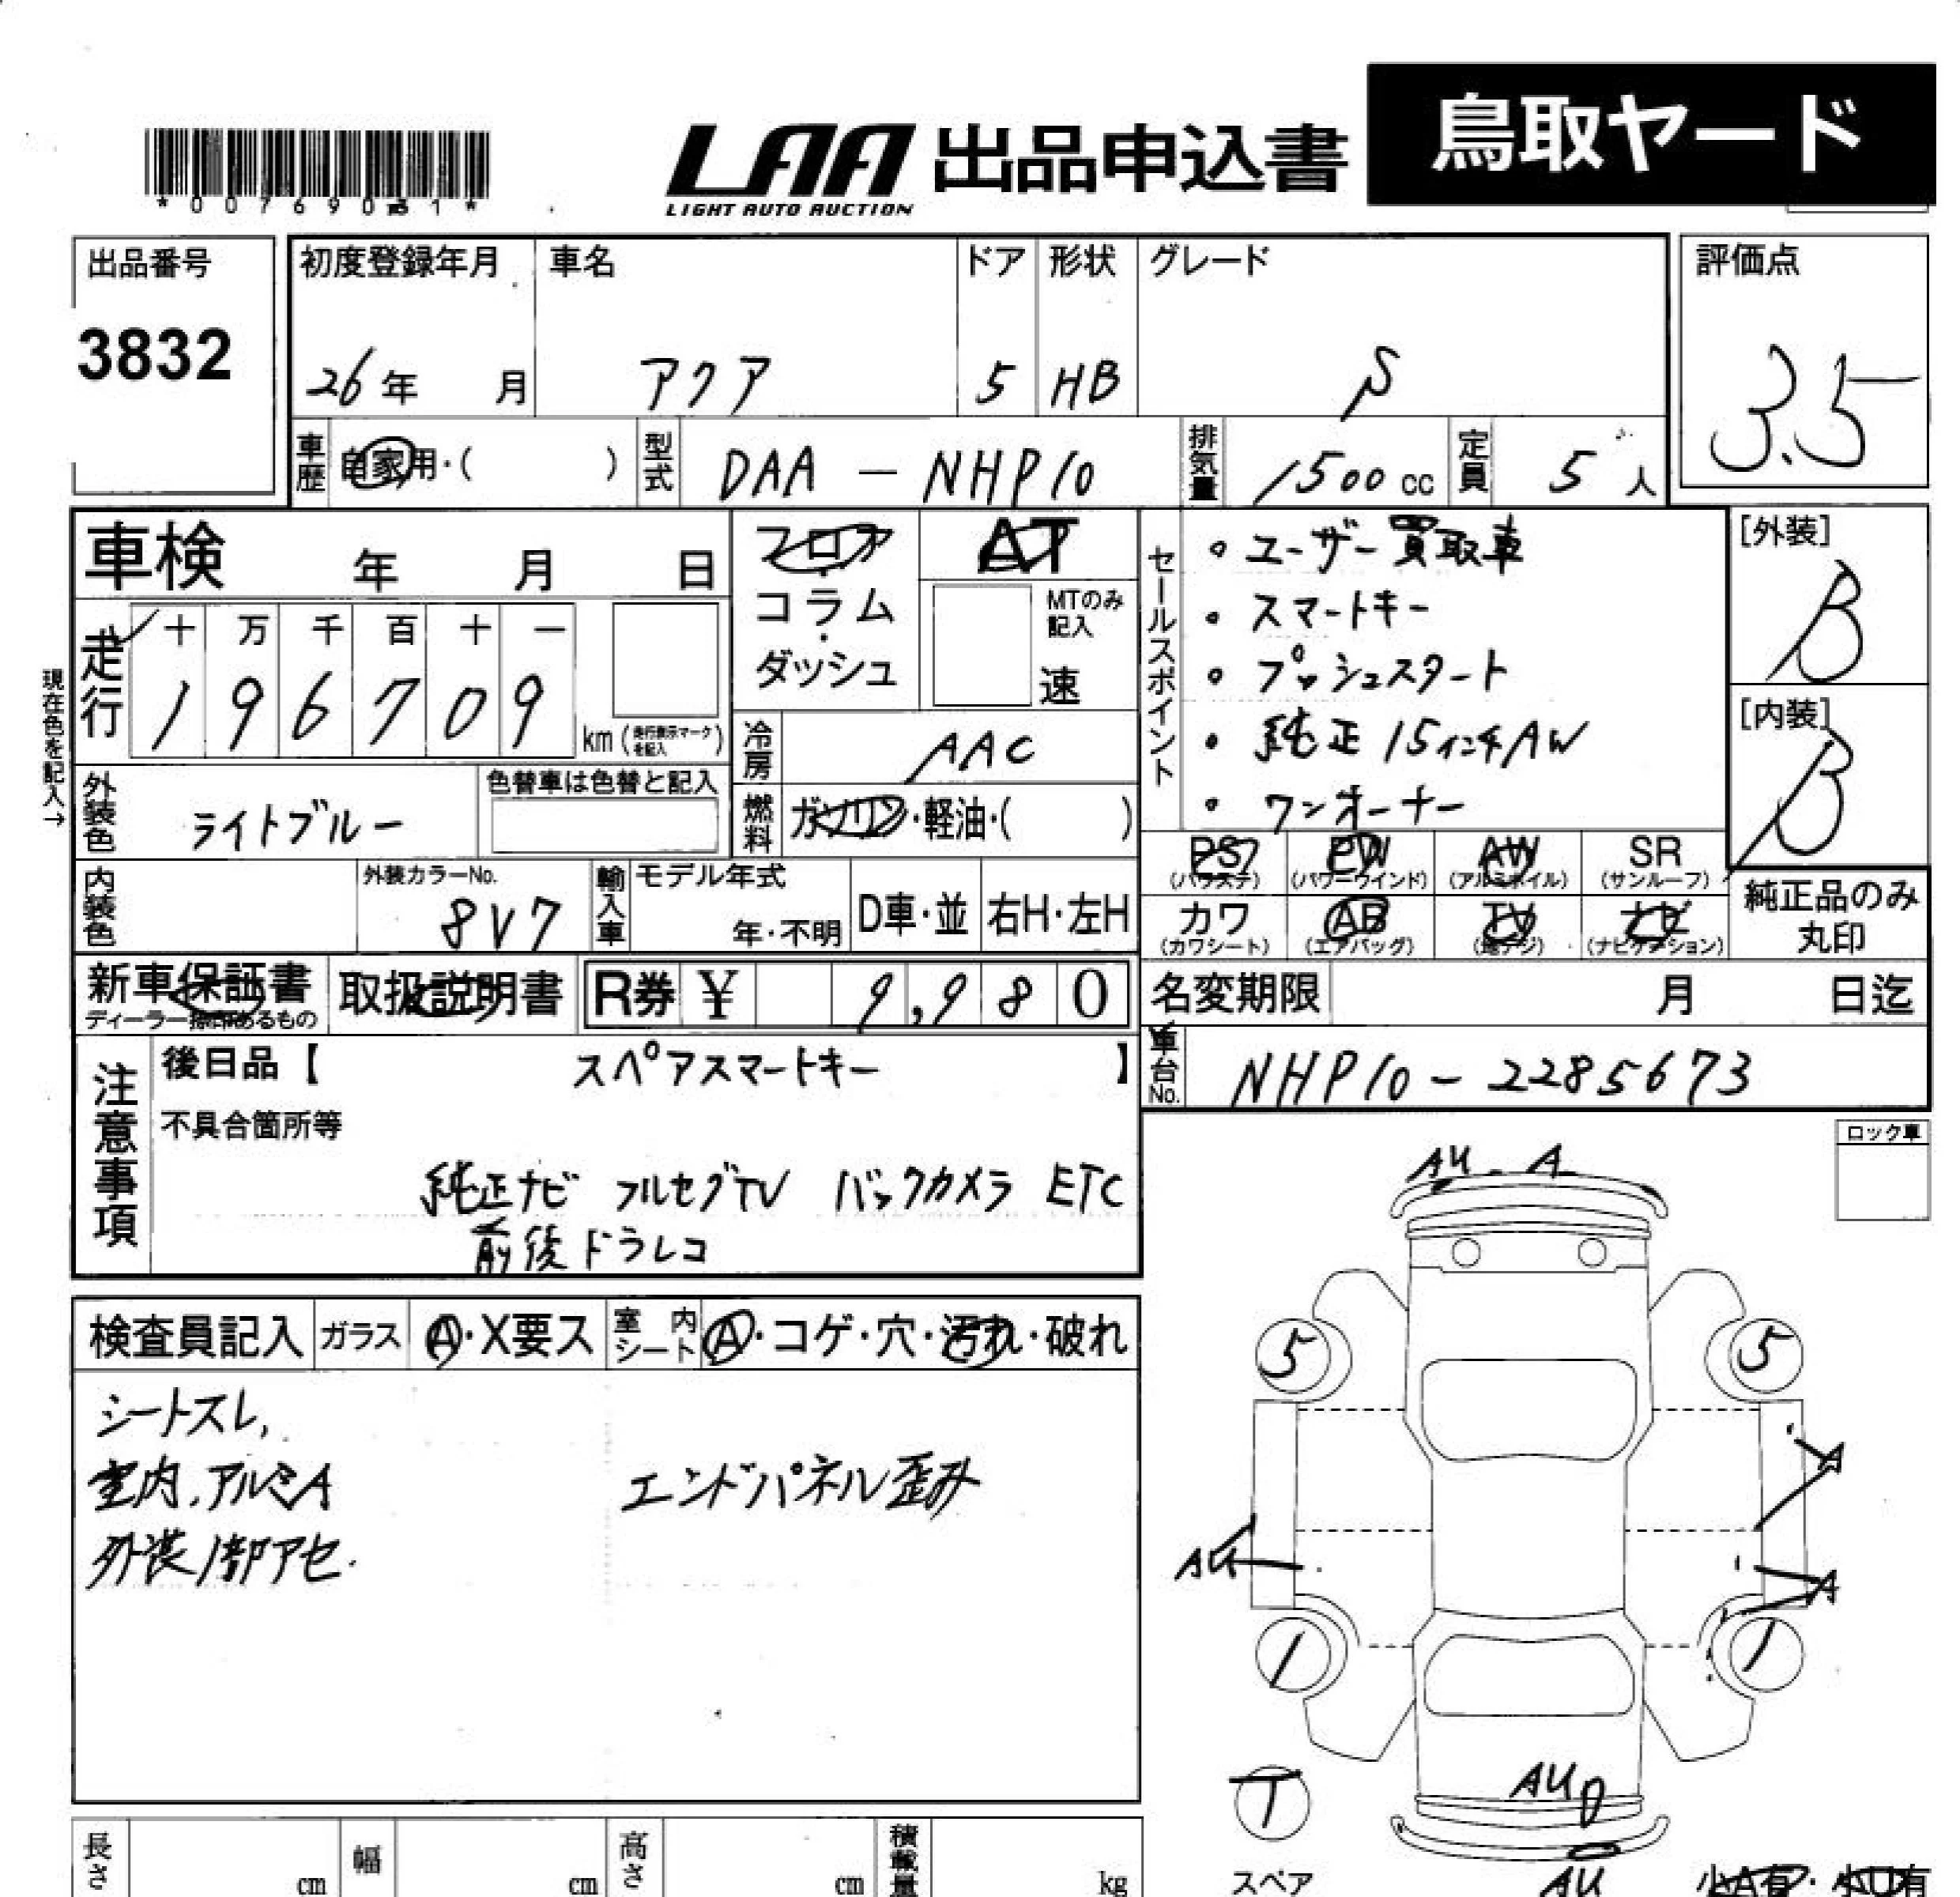 鳥取ヤード
LAA 出品申込書
LIGHT AUTO AUCTION
*00769031*
出品番号 初度登録年月 車名 ドア 形状 グレード 評価点
3832 26年 月 アクア 5 HB S 3.5
車歴 自家用・( ) 型式 DAA - NHP10 排気量 1500cc 定員 5人
車検 年 月 日 フロア AT セールスポイント ・ユーザー買取車 [外装]
コラム MTのみ記入 ・スマートキー B
ダッシュ 速 ・プッシュスタート
走行 十 万 千 百 十 一
現在色を記入→
1 9 6 7 0 9 km(走行表示マークを記入) 冷房 AAC ・純正15インチAW [内装]
外装色 ライトブルー 色替車は色替と記入 燃料 ガソリン・軽油・( ) ・ワンオーナー B
PS (パワステ) PW (パワーウインド) AW (アルミホイル) SR (サンルーフ)
内装色 外装カラーNo. 8V7 輸入車 モデル年式 年・不明 D車・並 右H・左H カワ (カワシート) AB (エアバッグ) TV (地デジ) ナビ (ナビゲーション) 純正品のみ丸印
新車保証書 取扱説明書 R券 ¥ 9,980 名変期限 月 日迄
ディーラー捺印あるもの
注意事項 後日品【 スペアスマートキー 】 車台No. NHP10-2285673
不具合箇所等 ロック車
純正ナビ フルセグTV バックカメラ ETC
前後ドラレコ
AU A
検査員記入 ガラス A・X要ス 室内シート A・コゲ・穴・汚れ・破れ
5 5
シートスレ,
室内,アルミA エンドパネル歪み A
外装1部アセ. AU A
1 1
T AU D
長さ cm 幅 cm 高さ cm 積載量 kg スペア AU 小A有・小U有